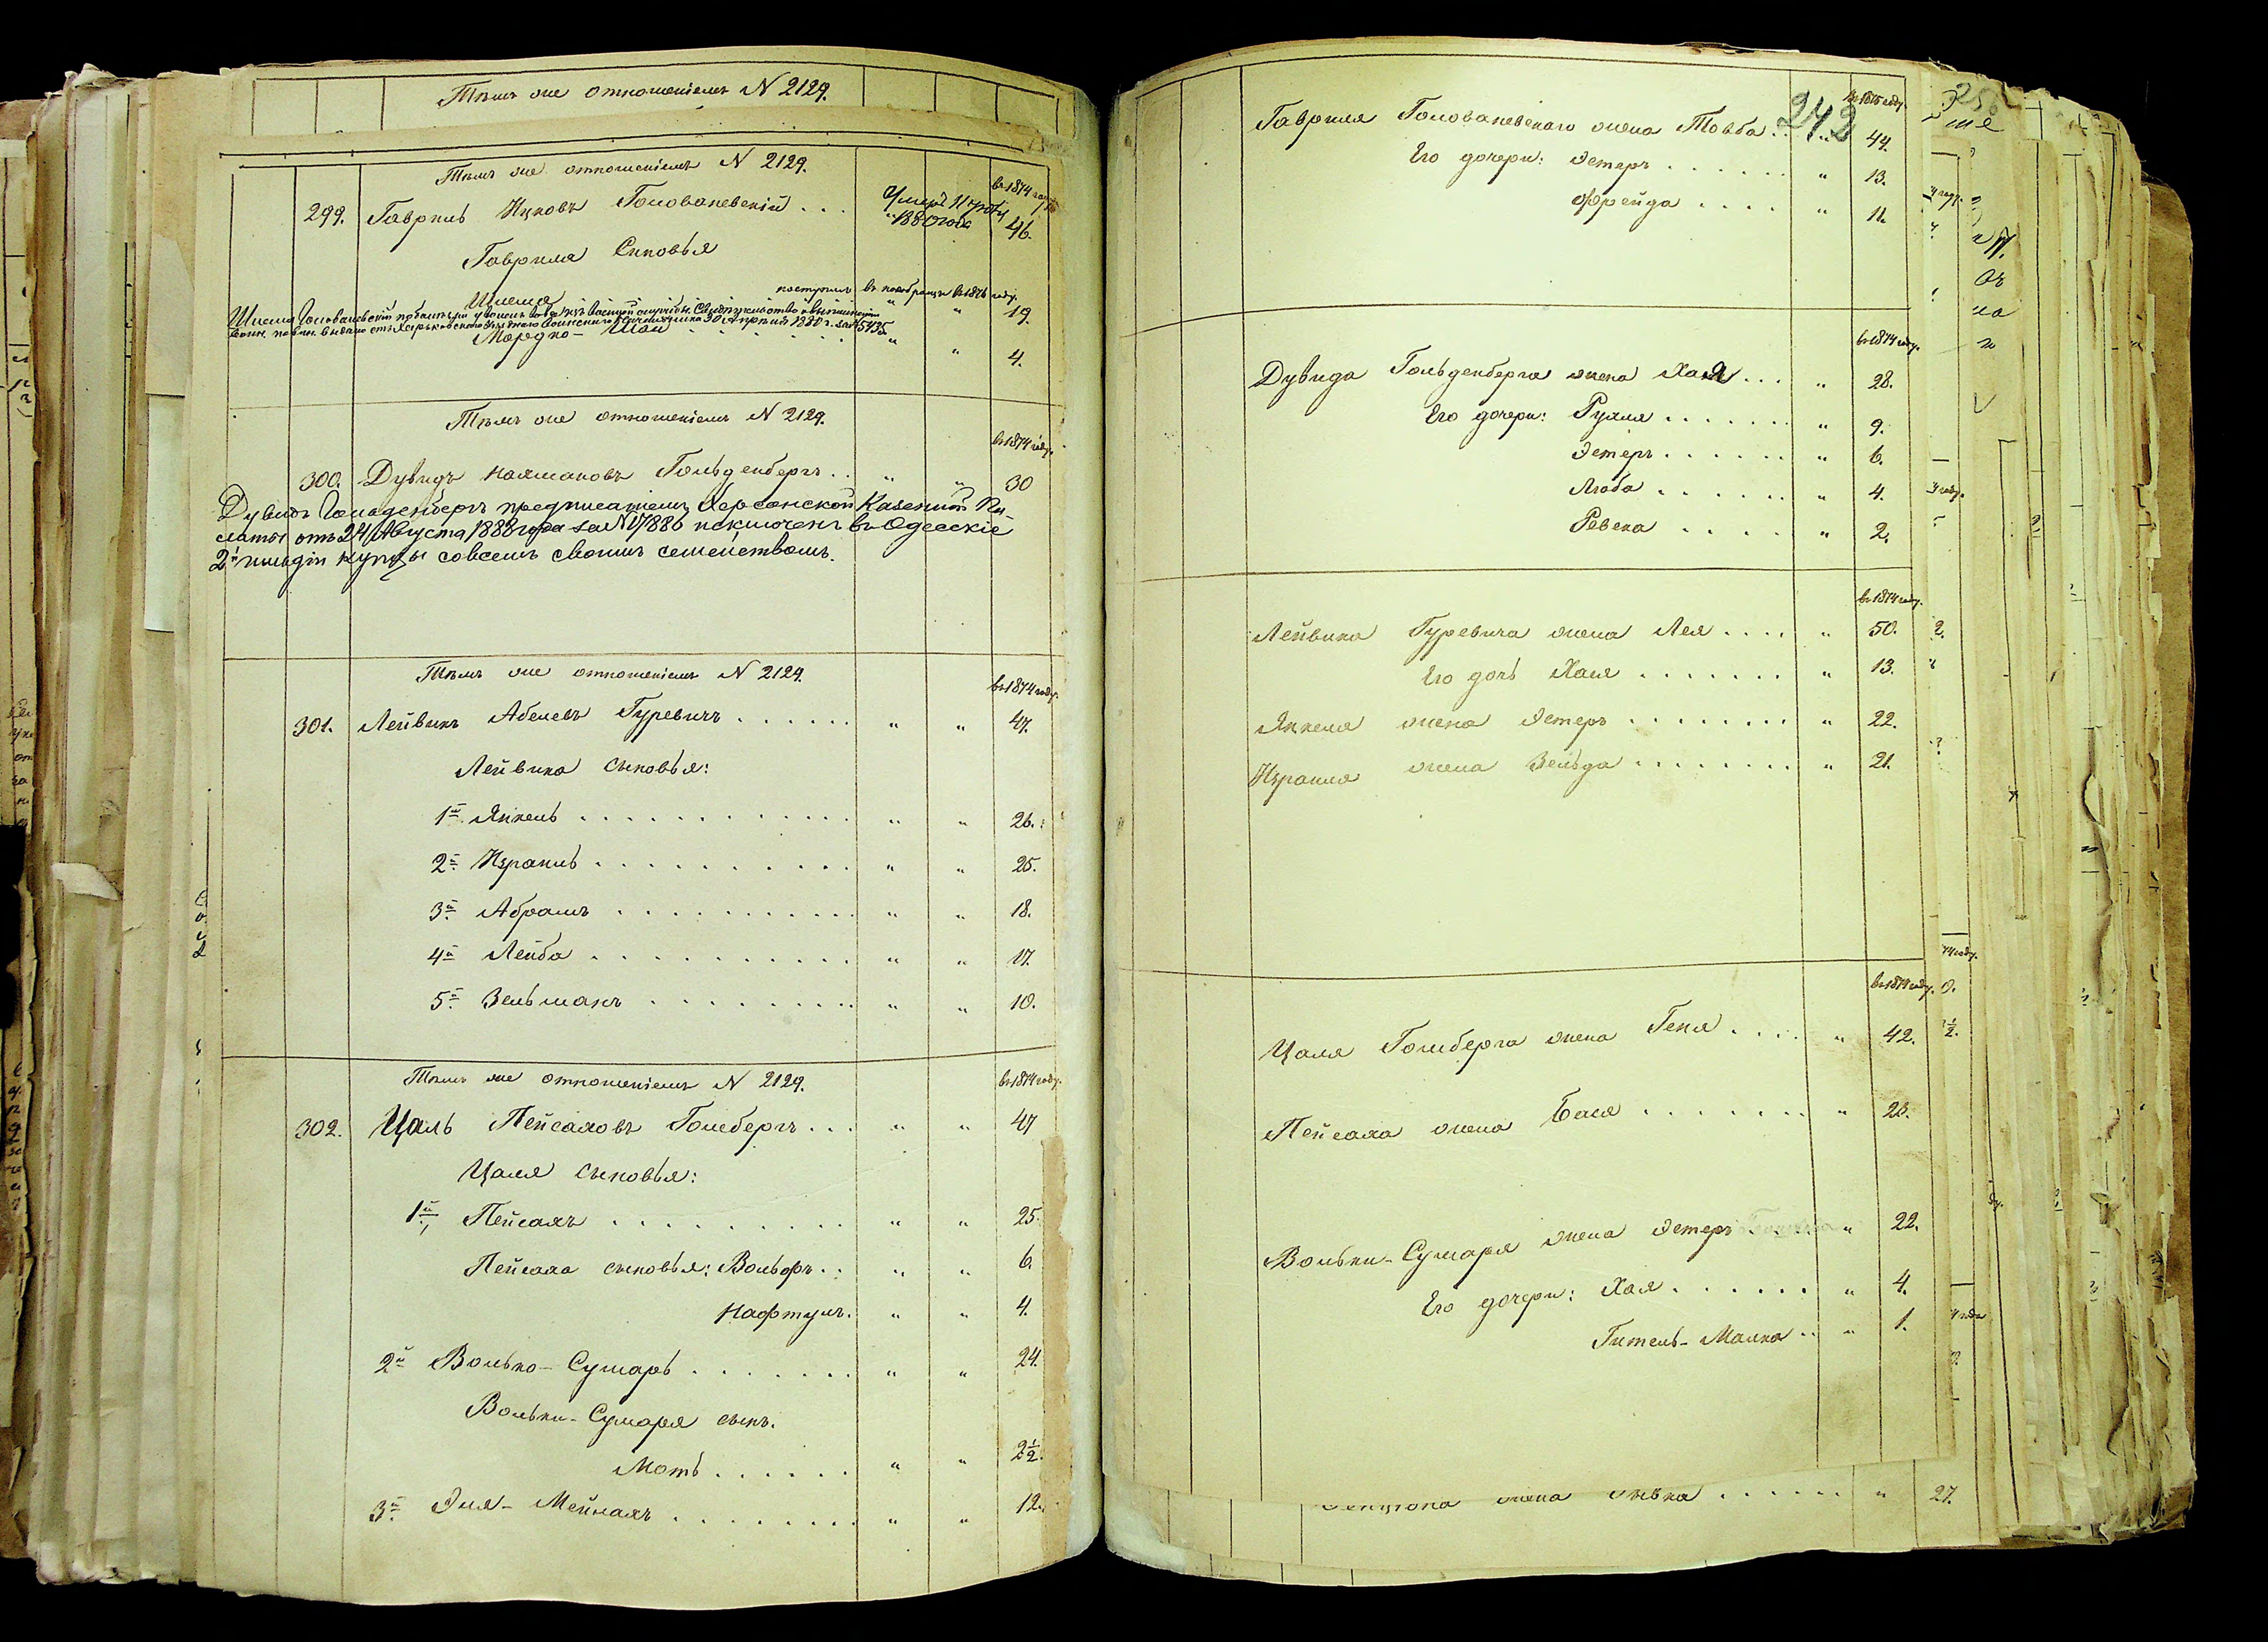 Тѣмъ же отношеніемъ N 2129.
Тѣмъ же отношеніемъ N 2129.
въ 1874 году
299. Гаврилъ Ицковъ Голованевскій . . . Умеръ 1880 года 46.
Гаврила Сыновья
Шлема поступилъ въ новобранцы въ 1876 году. " 19.
Шлема Голованевскій
30 Апрѣля 1880 г. за № 5435
Мордко- . . . . . . " " 4.
Тѣмъ же отношеніемъ N 2129.
въ 1874 году.
300. Дувидъ Нахмановъ Гольденбергъ . . " " 30
Дувидъ Гольденбергъ предписаніемъ Херсонской Казенной Па-
латы отъ 24 Августа 1888 года за N 17886 исключенъ въ Одесскіе
2й гильдіи купцы совсемъ своимъ семействомъ.
Тѣмъ же отношеніемъ N 2129.
въ 1874 году.
301. Лейвикъ Абелевъ Гуревичъ . . . . . . " " 47.
Лейвика сыновья:
1й Янкель . . . . . . . . . . . . " " 26.
2й Израиль . . . . . . . . . . . " " 25.
3й Абрамъ . . . . . . . . . . . " " 18.
4й Лейба . . . . . . . . . . . " " 17.
5й Зельманъ . . . . . . . . . " " 10.
Тѣмъ же отношеніемъ N 2129.
въ 1874 году.
302. Цаль Пейсаховъ Гольбергъ . . . " " 47
Цаля сыновья:
1й Пейсахъ . . . . . . . . . . " " 25.
Пейсаха сыновья: Вольфъ . . " " 6.
Нафтулъ. " " 4.
2й Волько-Сумаръ . . . . . . . " " 24.
Вольки-Сумаря сынъ.
Моть . . . . . . " " 2½.
3й Эля-Мейлахъ . . . . . . . . " " 12.
242
въ 1875 году.
Гавриля Голованевскаго жена Товба . . " 44.
Его дочери: Эстеръ . . . . . . " 13.
Фрейда . . . . " 11.
въ 1874 году.
Дувида Гольденберга жена Хая . . . " 28.
Его дочери: Рухля . . . . . . . " 9.
Эстеръ . . . . . . " 6.
Люба . . . . . . " 4.
Ревека . . . . . " 2.
въ 1874 году.
Лейвика Гуревича жена Лея . . . . " 50.
Его дочь Хая . . . . . . . " 13.
Янкеля жена Эстеръ . . . . . . . . " 22.
Израиля жена Зельда . . . . . . . . " 21.
въ 1874 году.
Цаля Гольберга жена Геня . . . . " 42.
Пейсаха жена Бася . . . . . . . " 23.
Вольки-Сумаря жена Эстеръ . . . . " 22.
Его дочери: Хая . . . . . . " 4.
Гитель-Малка . . " 1.
жена . . . . . . " 27.